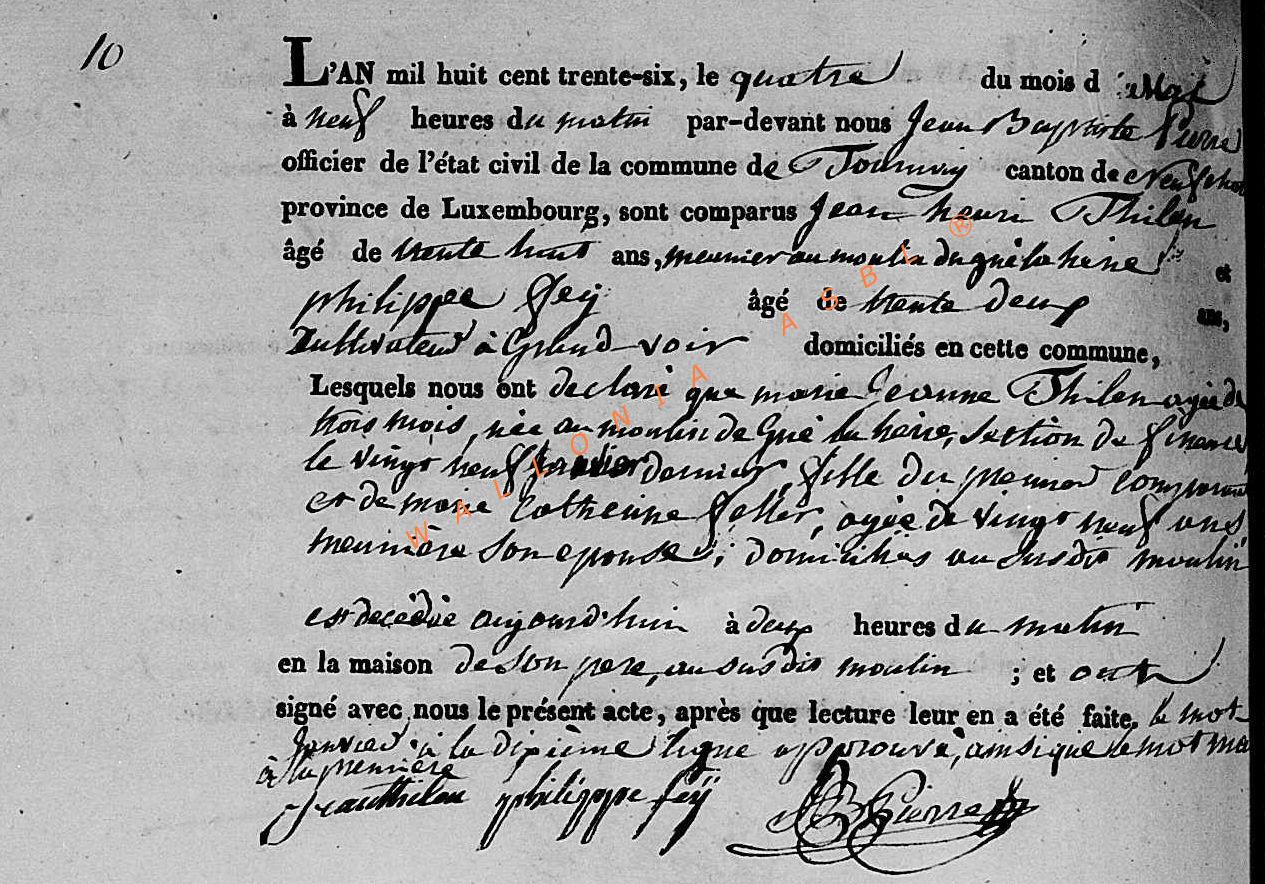 10
L'AN mil huit cent trente-six, le quatre du mois d Mai
à neuf heures du matin par-devant nous Jean Baptiste Pierre
officier de l'état civil de la commune de Tournay canton de Neufchat
province de Luxembourg, sont comparus Jean henri Thilen
âgé de trente huit ans, meunier au moulin du gué la hene et
philippe fey âgé de trente deux ans,
Cultivateur à Grand-voir domiciliés en cette commune,
Lesquels nous ont declaré que marie Jeanne Thilen agée de
trois mois, née au moulin de Gué la heine, Section de
le vingt neuf janvier dernier, fille du premier comparant
et de marie Catherine feller, agée de vingt neuf ans
meunière son epouse, domiciliés au susdit moulin
est decedée aujourd'hui à deux heures du matin
en la maison de son pere, au susdit moulin ; et ont
signé avec nous le présent acte, après que lecture leur en a été faite. le mot
Janvier à la dixieme ligne approuvé, ainsi que le mot mai
à la premiere
Jean thilen philippe feÿ JB Pierre
WALLONIA ASBL ®